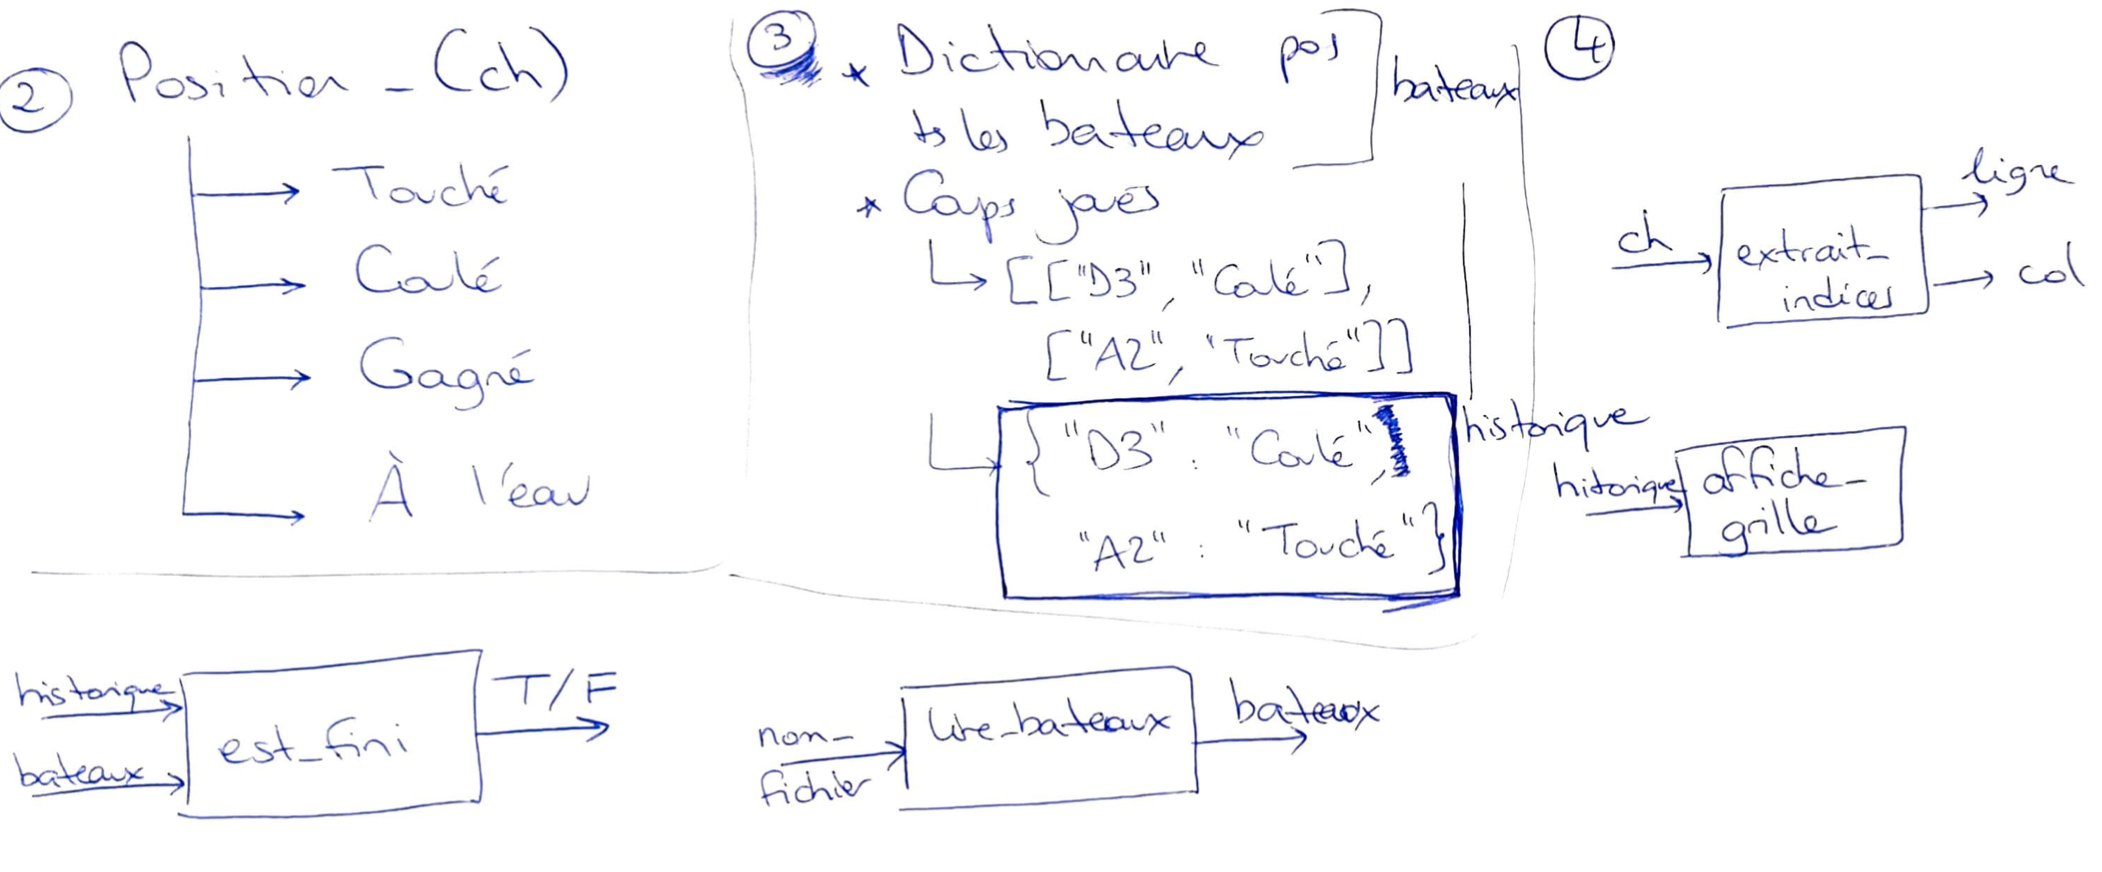 ② Position _ (ch)
Touché
Coulé
Gagné
À l'eau
③ * Dictionnaire pos
ts les bateaux
bateaux
* Coups joués
[["D3", "Coulé"],
["A2", "Touché"]]
{"D3" : "Coulé",
"A2" : "Touché"}
historique
④
ch
extrait_
indices
ligne
col
hitorique
affiche_
grille
historique
bateaux
est_fini
T/F
nom_
fichier
lire_bateaux
bateaux